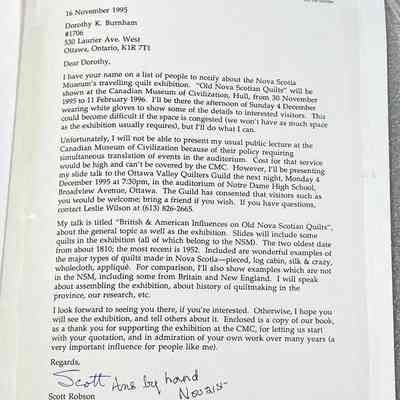 16 November 1995
Dorothy K. Burnham
#1706
530 Laurier Ave. West
Ottawa, Ontario, K1R 7T1
Dear Dorothy,
I have your name on a list of people to notify about the Nova Scotia
Museum's travelling quilt exhibition. "Old Nova Scotian Quilts" will be
shown at the Canadian Museum of Civilization, Hull, from 30 November
1995 to 11 February 1996. I'll be there the afternoon of Sunday 4 December
wearing white gloves to show some of the details to interested visitors. This
could become difficult if the space is congested (we won't have as much space
as the exhibition usually requires), but I'll do what I can.
Unfortunately, I will not be able to present my usual public lecture at the
Canadian Museum of Civilization because of their policy requiring
simultaneous translation of events in the auditorium. Cost for that service
would be high and can't be covered by the CMC. However, I'll be presenting
my slide talk to the Ottawa Valley Quilters Guild the next night, Monday 4
December 1995 at 7:30pm, in the auditorium of Notre Dame High School,
Broadview Avenue, Ottawa. The Guild has consented that visitors such as
you would be welcome; bring a friend if you wish. If you have questions,
contact Leslie Wilson at (613) 826-2665.
My talk is titled "British & American Influences on Old Nova Scotian Quilts",
about the general topic as well as the exhibition. Slides will include some
quilts in the exhibition (all of which belong to the NSM). The two oldest date
from about 1810; the most recent is 1952. Included are wonderful examples of
the major types of quilts made in Nova Scotia—pieced, log cabin, silk & crazy,
wholecloth, appliqué. For comparison, I'll also show examples which are not
in the NSM, including some from Britain and New England. I will speak
about assembling the exhibition, about history of quiltmaking in the
province, our research, etc.
I look forward to seeing you there, if you're interested. Otherwise, I hope you
will see the exhibition, and tell others about it. Enclosed is a copy of our book,
as a thank you for supporting the exhibition at the CMC, for letting us start
with your quotation, and in admiration of your own work over many years (a
very important influence for people like me).
Regards,
Scott Ans by hand
Scott Robson